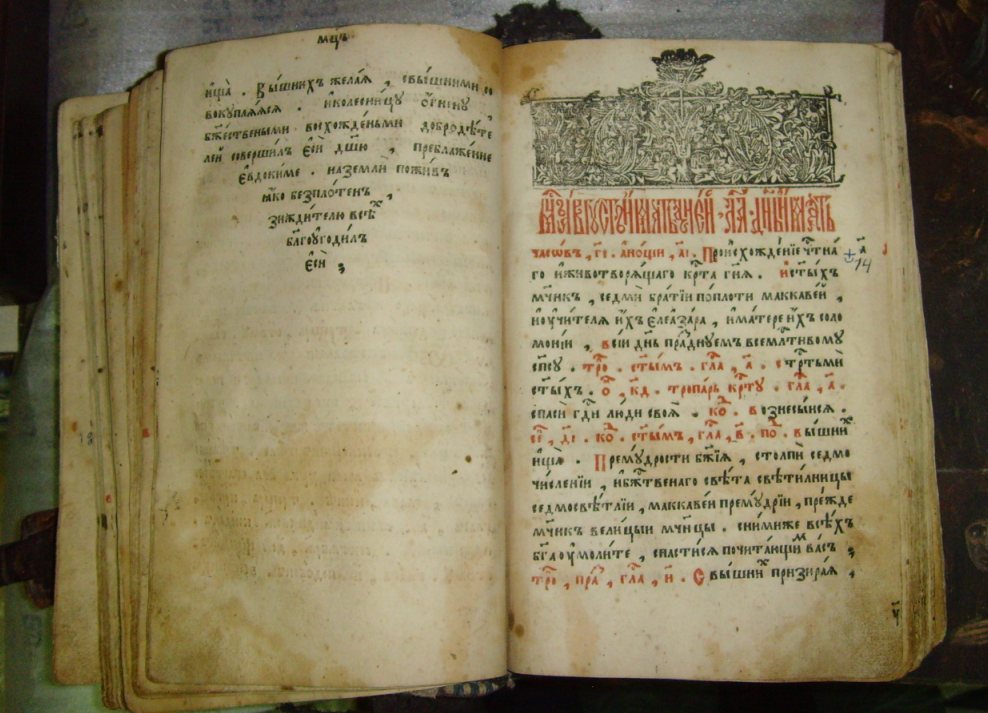 мⷭ҇цъ
ищѧ . Вы́шнихъ желаѧ , свы́шними со
вокуплѧѧсѧ . иколесницу о҆гнену ,
бж҃ествеными восхожде́ньми доброде́те
леи совершилъ є҆сѝ дш҃ю , преблажение
Є҆вдокиме . наземлѝ поживъ
ꙗ҆́ко безплотенъ ,
зиждителю всѣⷨ
бл҃гоꙋгодилъ
є҆сѝ ;
часѡ́въ , г҃і . а҆нощи , а҃і . Происхожде́нїе чтⷭ҇на
го иживотворѧ́щаго крⷭ҇та̀ гн҃ѧ . ист҃ыхъ
мч҃никъ , седмѝ бра́тїи поплоти маккаве́и ,
иѹчителѧ и҆́хъ є҆леа҆за́ра , има́тере и҆́хъ соло
монїи , всі́и дн҃ь пра́зднуемъ всемлⷭ҇тивому
спⷭ҇су . троⷫ҇ . ст҃ы́мъ . глⷭ҇а , а҃ . стрⷭ҇тьмѝ
ст҃ыхъ . ѻ҆ . к҃д . тропарь крⷭ҇ту . глⷭ҇а , а҃ .
спаси гдⷭ҇и лю́ди своѧ̀ . коⷣ . вознесы́исѧ .
є҃і , д҃і . коⷣ . ст҃ы́мъ , глⷭ҇а , в҃ . поⷣ . вышниⷯ
ищѧ . Прему́дрости бж҃їѧ , столпѝ седмо
числе́нїи , ибж҃твенаго свѣ́та свѣти́лницы
седмосвѣ́тлїи , маккаве́и прему́дрїи , пре́жде
мч҃никъ вели́цыи мч҃ницы . снимиже всѣ́хъ
бг҃а ѹмоли́те , спасти́сѧ почита́ющиⷨ ва́съ ;
троⷫ҇ , праⷣ , глⷭ҇а , и҃ . Свы́шниⷯ призира́ѧ ,
14